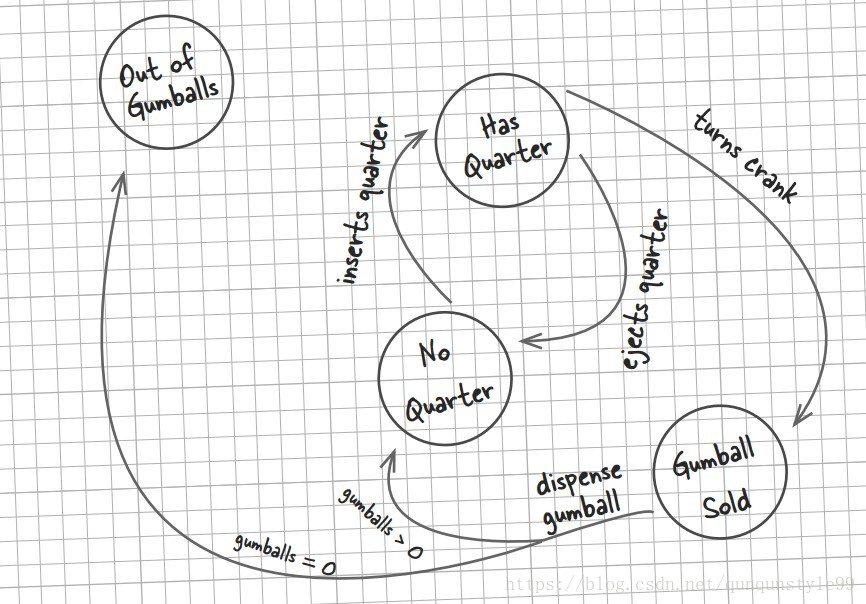 Out of
Gumballs
Has
Quarter
turns crank
inserts quarter
ejects quarter
No
Quarter
Gumball
Sold
dispense
gumball
gumballs > 0
gumballs = 0
https://blog.csdn.net/qunqunstyle99